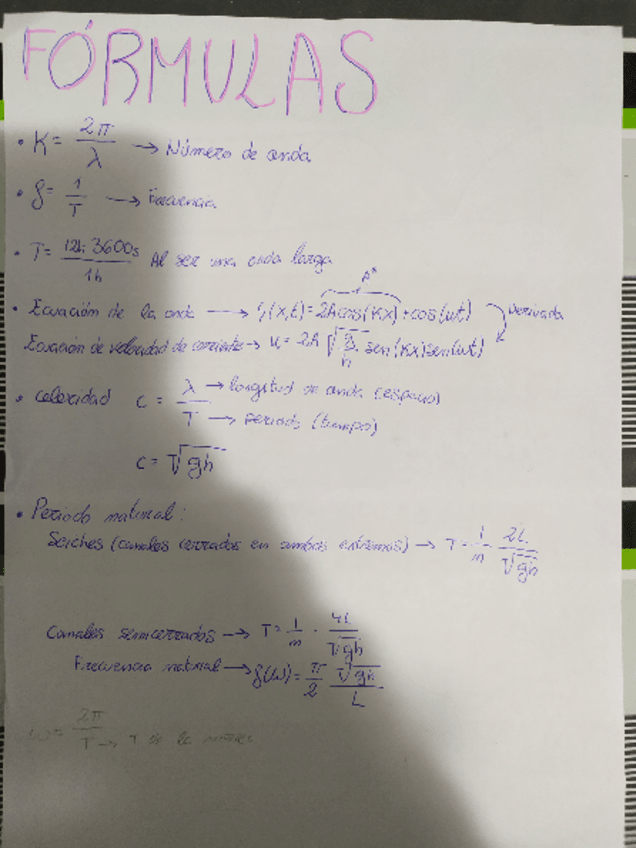 FÓRMULAS
• K = 2π / λ → Número de onda
• f = 1 / T → Frecuencia
• T = 12h · 3600s / 1h Al ser una onda larga
A*
• Ecuación de la onda → ζ(x,t) = 2A cos(Kx) + cos(ωt) Derivada
Ecuación de velocidad de corrientes → u = 2A √(g/h) sen(Kx) sen(ωt)
• Celeridad C = λ / T → longitud de onda (espacio) → periodo (tiempo)
C = √gh
• Periodo natural:
Seiches (canales cerrados en ambos extremos) → T = 1/n 2L/√gh
Canales semicerrados → T = 1/n · 4L/√gh
Frecuencia natural → f(ω) = π/2 √gh/L
ω = 2π / T → T de la